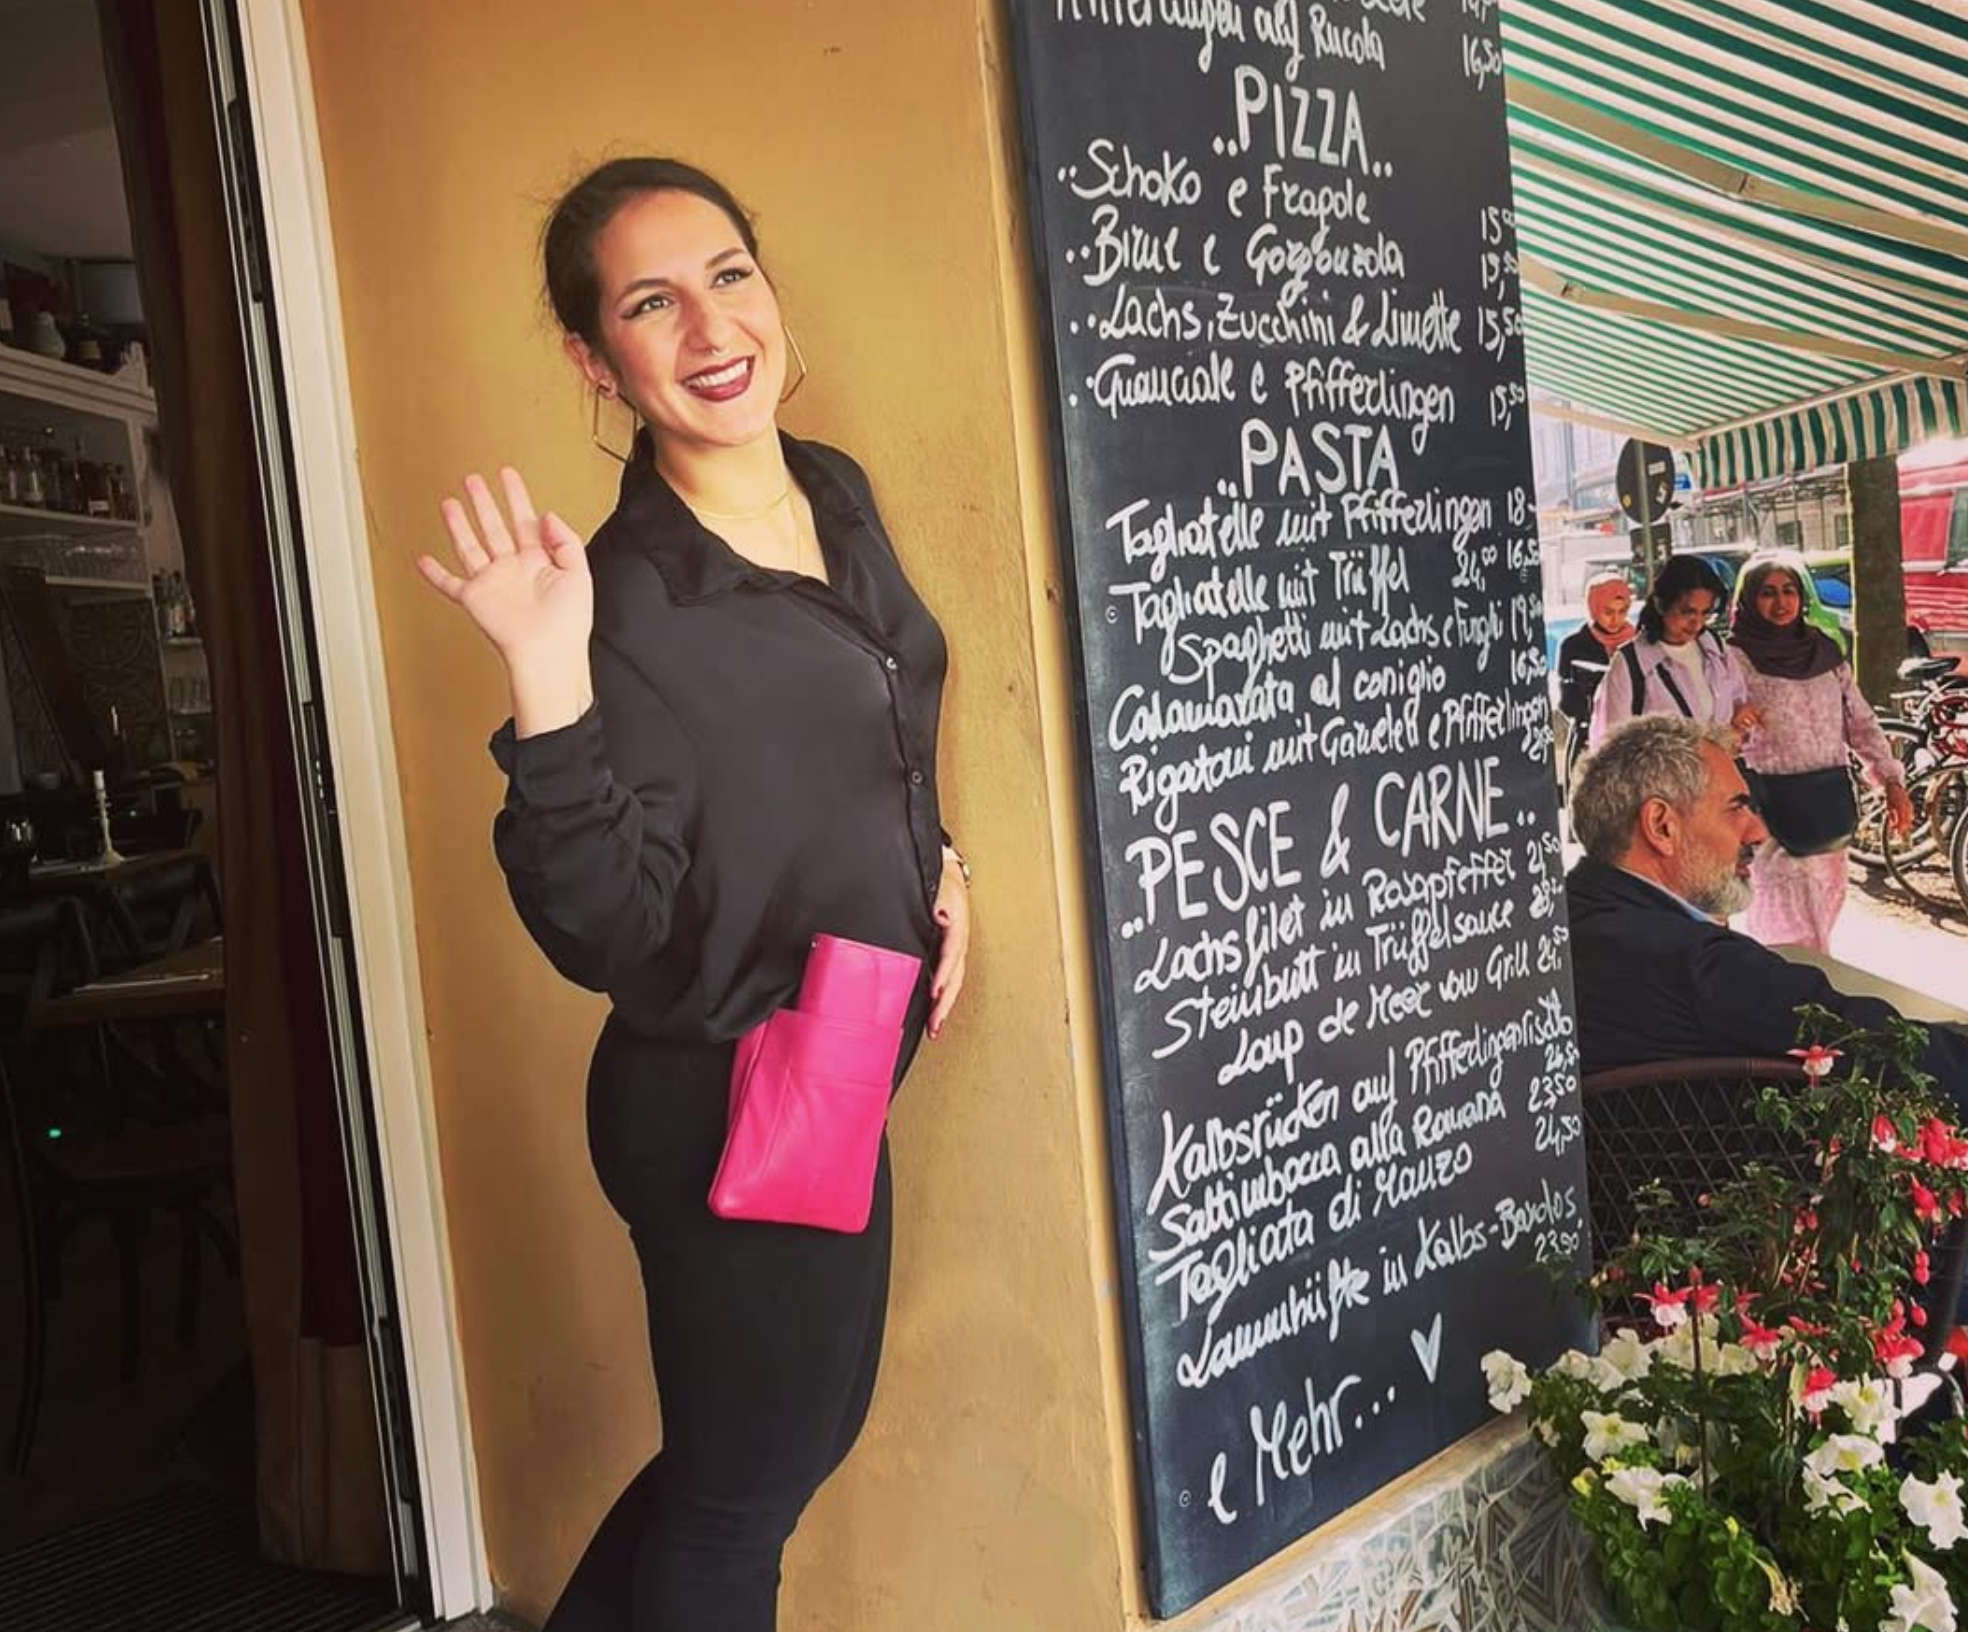 Pfifferlingen auf Rucola 16,50
..PIZZA..
..Schoko e Fragole 15,00
..Birne e Gorgonzola 15,50
..Lachs, Zucchini & Limette 15,50
..Guanciale e Pfifferlingen 15,50
..PASTA
Tagliatelle mit Pfifferlingen 18,-
Tagliatelle mit Trüffel 24,00 16,50
Spaghetti mit Lachs e Funghi 19,50
Calamarata al coniglio 16,50
Rigatoni mit Garnelen e Pfifferlingen
..PESCE & CARNE..
Lachsfilet in Rosapfeffer 21,50
Steinbutt in Trüffelsauce
Loup de Meer vom Grill 24,50
Kalbsrücken auf Pfifferlingenrisotto
26,50
Saltimbocca alla Romana 23,50
Tagliata di Manzo 24,50
Lammhüfte in Kalbs-Barolos
23,90
e Mehr...